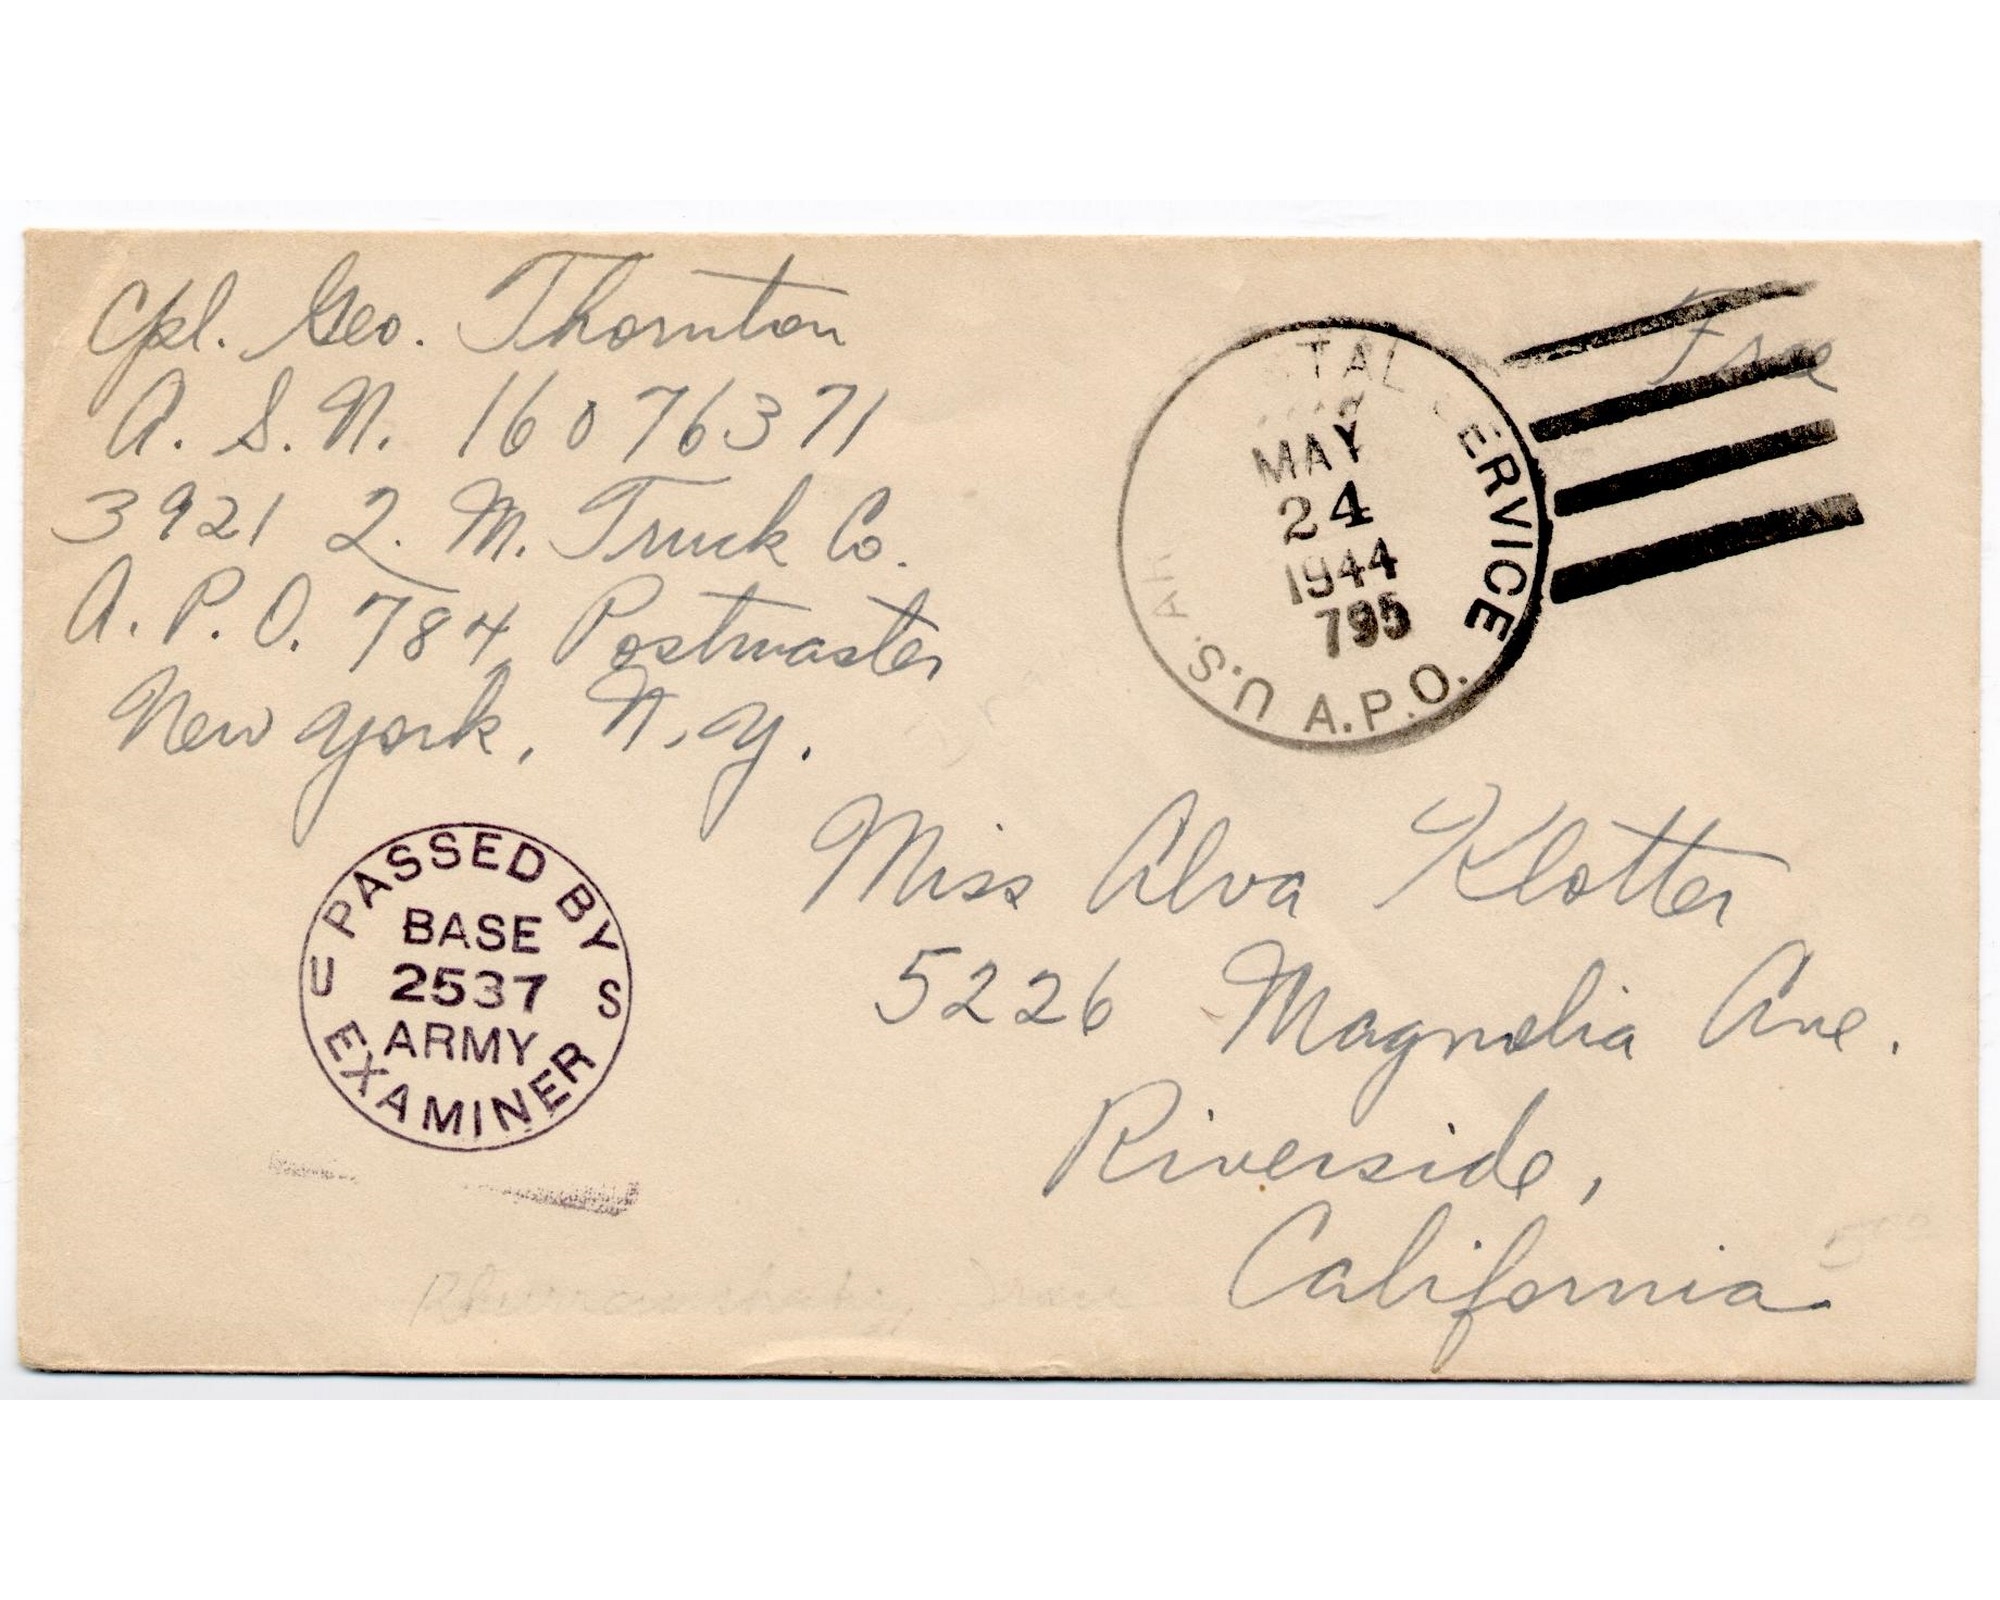 Cpl. Geo. Thornton
A. S. N. 16076371
3921 Q. M. Truck Co.
A. P. O. 784, Postmaster
New York, N. Y.
Free
TAL ERVICE
MAY
24
1944
795
U.S. AR
A.P.O.
PASSED BY
U S
BASE
2537
ARMY
EXAMINER
Miss Alva Klotter
5226 Magnolia Ave.
Riverside,
California